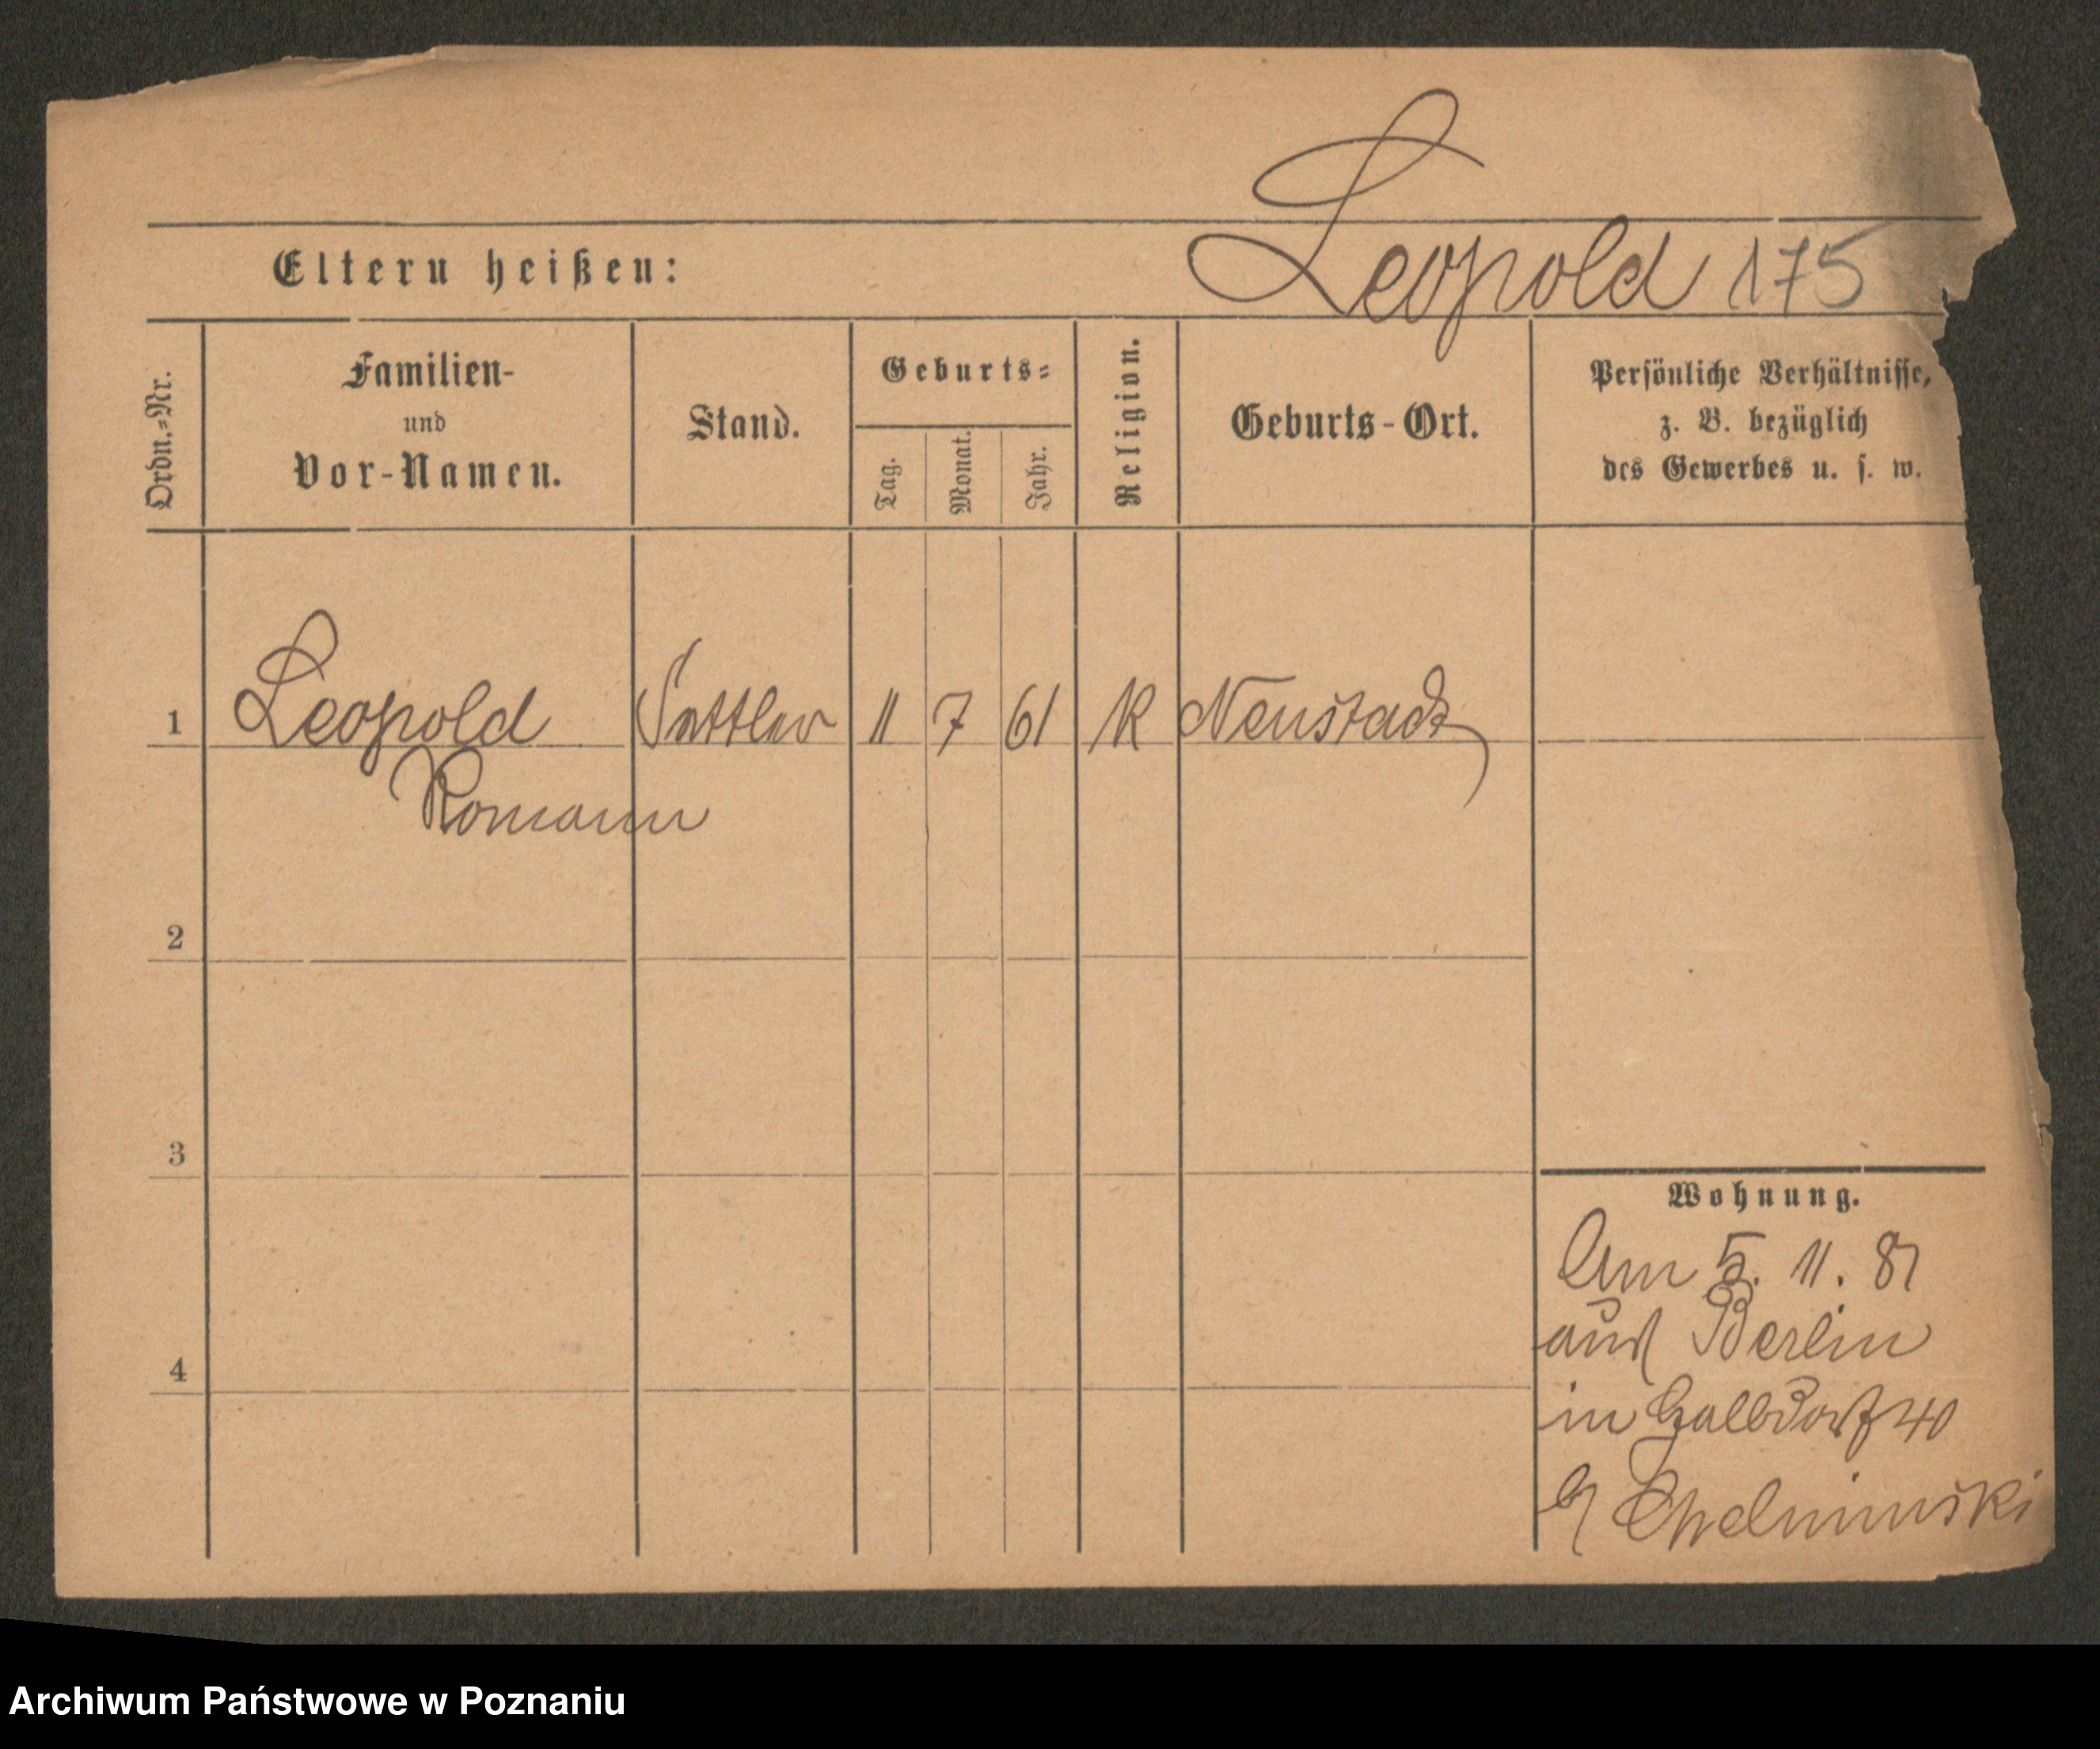 Leopold 175
Eltern heißen:
Ordn.=Nr.
Familien-
und
Vor-Namen.
Stand.
Geburts=
Tag.
Monat.
Jahr.
Religion.
Geburts-Ort.
Persönliche Verhältnisse,
z. B. bezüglich
des Gewerbes u. s. w.
1 Leopold Sattler 11 7 61 K Neustadt
Romann
2
3
4
Wohnung.
Am 5. 11. 81
aus Berlin
in Halbdorf 40
b Chelminski
Archiwum Państwowe w Poznaniu